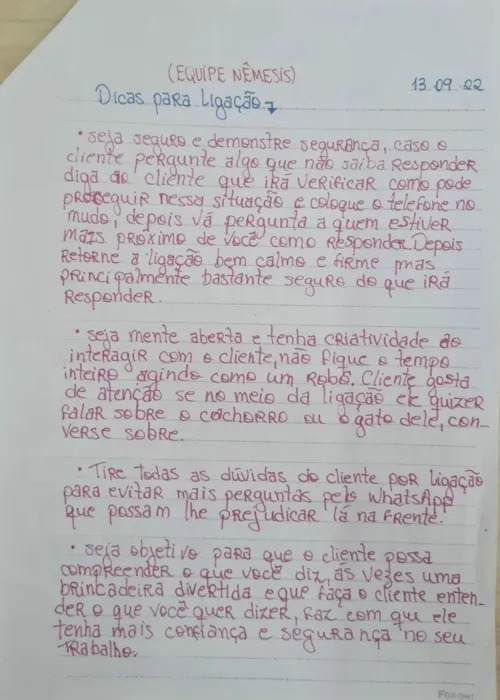 (EQUIPE NÊMESIS)
13.09.22
Dicas para Ligação
• seja seguro e demonstre segurança, caso o
cliente pergunte algo que não saiba Responder
diga ao cliente que irá verificar como pode
prosseguir nessa situação e coloque o telefone no
mudo, depois vá pergunta a quem estiver
mais proximo de você como responder. Depois
Retorne a ligação bem calmo e firme mas
principalmente bastante seguro do que irá
Responder.
• seja mente aberta e tenha criatividade ao
interagir com o cliente, não fique o tempo
inteiro agindo como um Robô. Cliente gosta
de atenção se no meio da ligação ele quizer
falar sobre o cachorro ou o gato dele, con-
verse sobre.
• Tire todas as dúvidas do cliente por ligação
para evitar mais perguntas pelo WhatsApp
que possam lhe prejudicar lá na frente.
• seja objetivo para que o cliente possa
compreender o que você diz, ás vezes uma
brincadeira divertida e que faça o cliente enten-
der o que você quer dizer, faz com que ele
tenha mais confiança e segurança no seu
trabalho.
Foroni